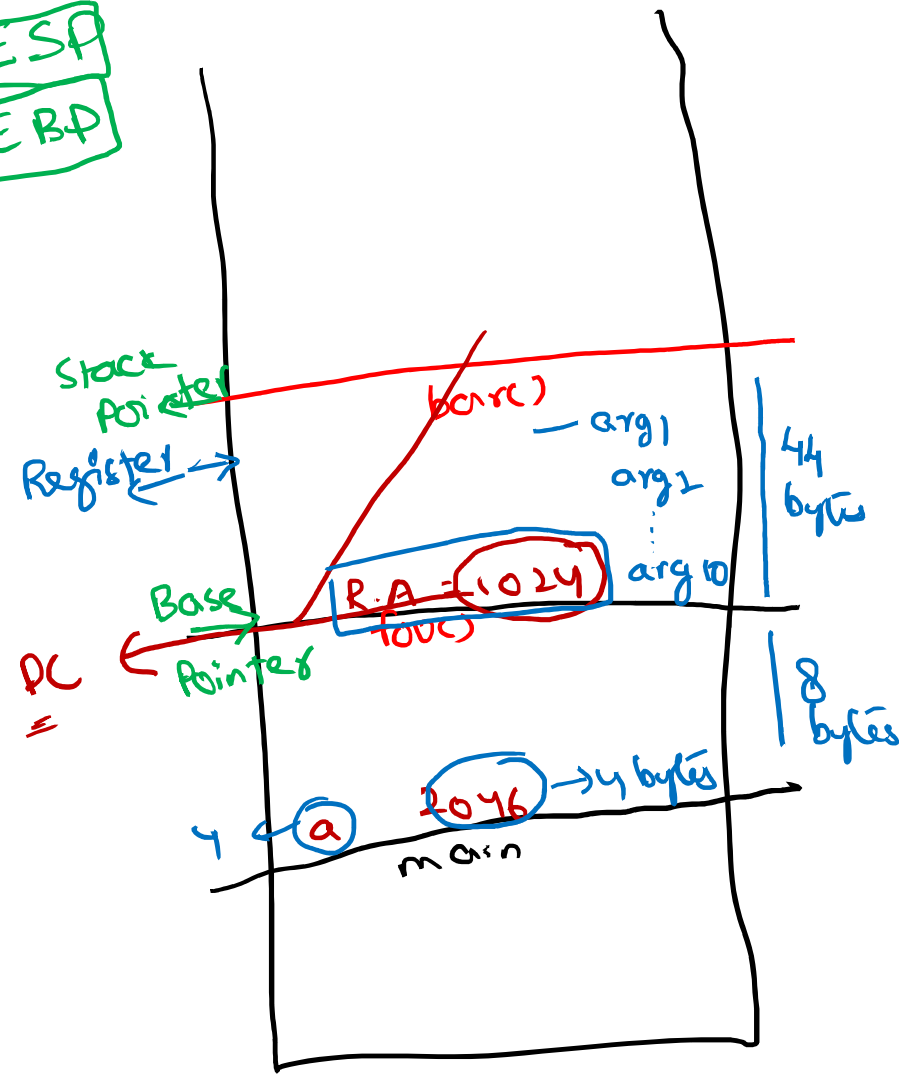 ESP
EBP
Stack
Pointer
Register
bar()
arg1
arg2
arg10
44
bytes
R.A = 1024
Base
Pointer
foo()
PC
8
bytes
2046
4 bytes
4
a
main